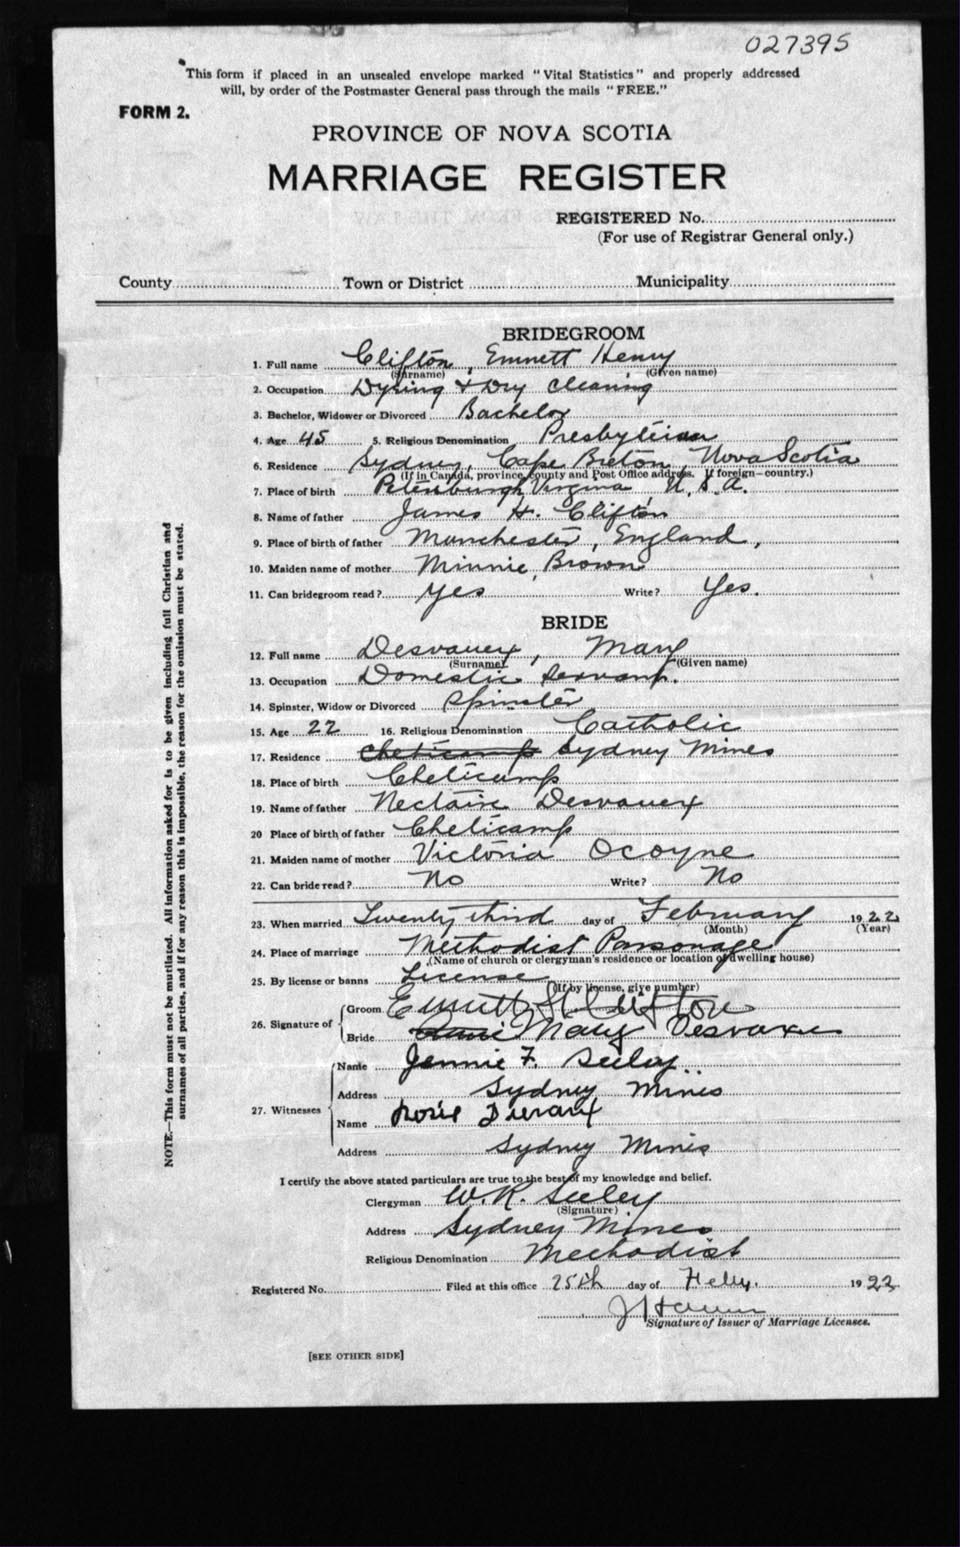 027395
This form if placed in an unsealed envelope marked "Vital Statistics" and properly addressed
will, by order of the Postmaster General pass through the mails "FREE."
FORM 2.
PROVINCE OF NOVA SCOTIA
MARRIAGE REGISTER
REGISTERED No.
(For use of Registrar General only.)
County Town or District Municipality
BRIDEGROOM
1. Full name Clifton, Emmett Henry
(Surname) (Given name)
2. Occupation Dying & Dry Cleaning
3. Bachelor, Widower or Divorced Bachelor
4. Age 45 5. Religious Denomination Presbyterian
6. Residence Sydney, Cape Breton, Nova Scotia
(If in Canada, province, county and Post Office address. If foreign—country.)
7. Place of birth Petersburgh Virginia, U.S.A.
8. Name of father James H. Clifton
9. Place of birth of father Manchester, England,
10. Maiden name of mother Minnie Brown
11. Can bridegroom read? Yes Write? Yes.
BRIDE
12. Full name Desvauex, Mary
(Surname) (Given name)
13. Occupation Domestic Servant.
14. Spinster, Widow or Divorced Spinster
15. Age 22 16. Religious Denomination Catholic
17. Residence Cheticamp Sydney Mines
18. Place of birth Cheticamp
19. Name of father Nectaire Desvauex
20 Place of birth of father Cheticamp
21. Maiden name of mother Victoria Ocoyne
22. Can bride read? No Write? No
23. When married Twenty third day of February 1922
(Month) (Year)
24. Place of marriage Methodist Parsonage
(Name of church or clergyman's residence or location of dwelling house)
25. By license or banns License
(If by license, give number)
26. Signature of Groom Emmett H. Clifton
Bride Mary Desvaux
27. Witnesses Name Jennie F. Seeley
Address Sydney Mines
Name Rosie
Address Sydney Mines
I certify the above stated particulars are true to the best of my knowledge and belief.
Clergyman W. R. Seeley
(Signature)
Address Sydney Mines
Religious Denomination Methodist
Registered No. Filed at this office 25th day of Feby. 1922
Signature of Issuer of Marriage Licenses.
[SEE OTHER SIDE]
NOTE.—This form must not be mutilated. All information asked for is to be given including full Christian and
surnames of all parties, and if for any reason this is impossible, the reason for the omission must be stated.